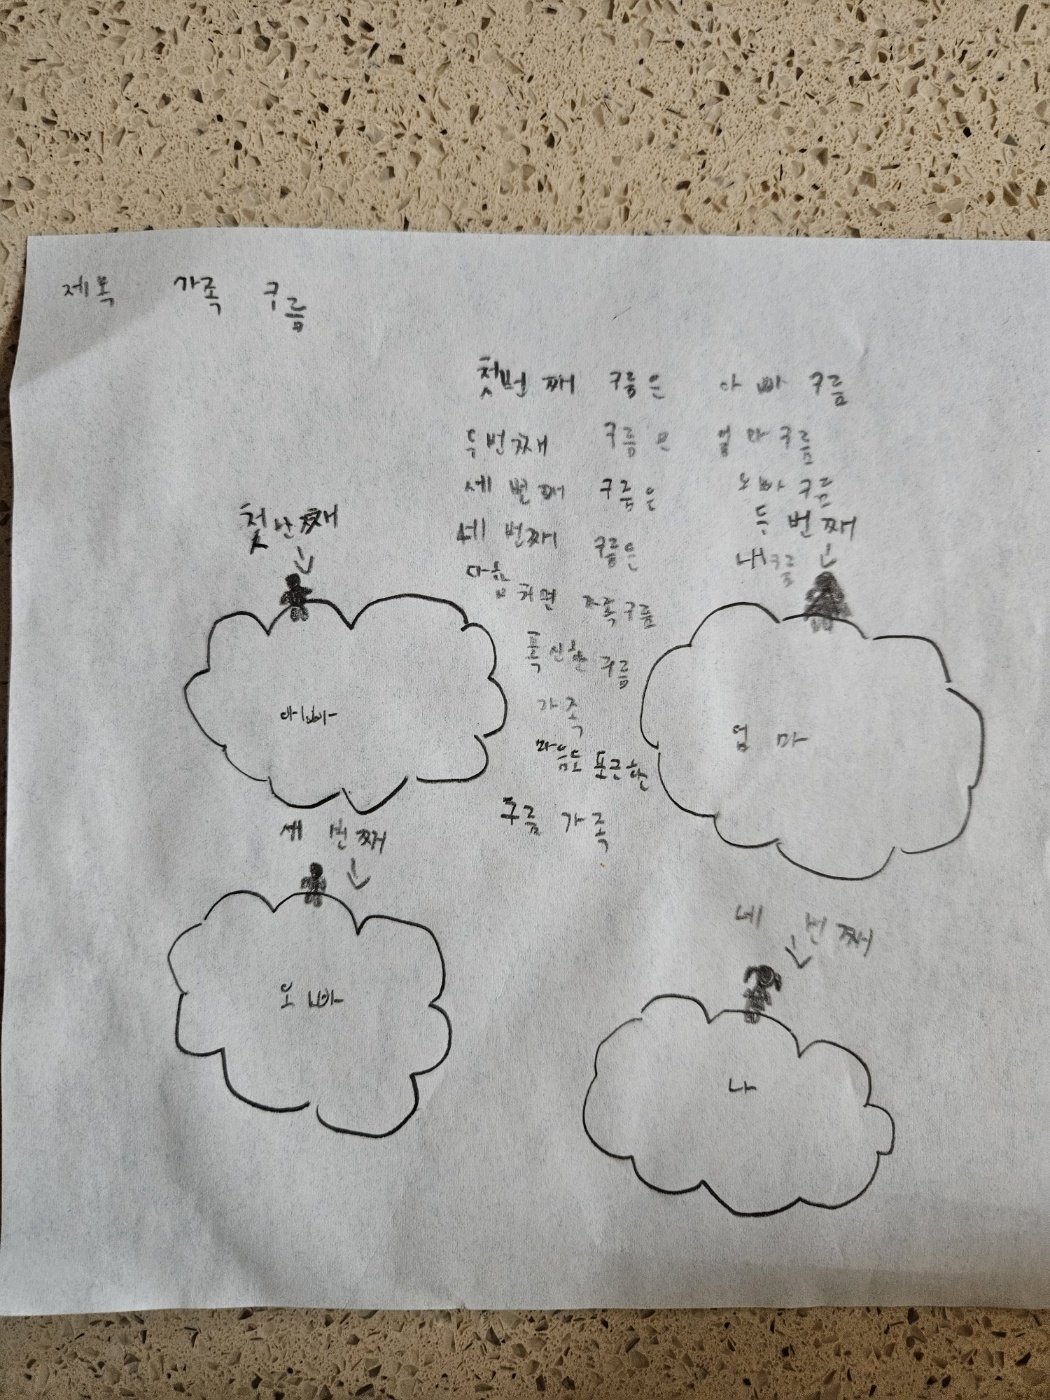 제목 가족 구름
첫번째 구름은 아빠 구름
두번째 구름은 엄마구름
세 번째 구름은 오빠 구름
네 번째 구름은 내구름
다음 가족구름
폭신한 구름
가족
마음도 포근한
구름 가족
첫난째
두 번째
아빠
엄마
세 번째
네 번째
오빠
나